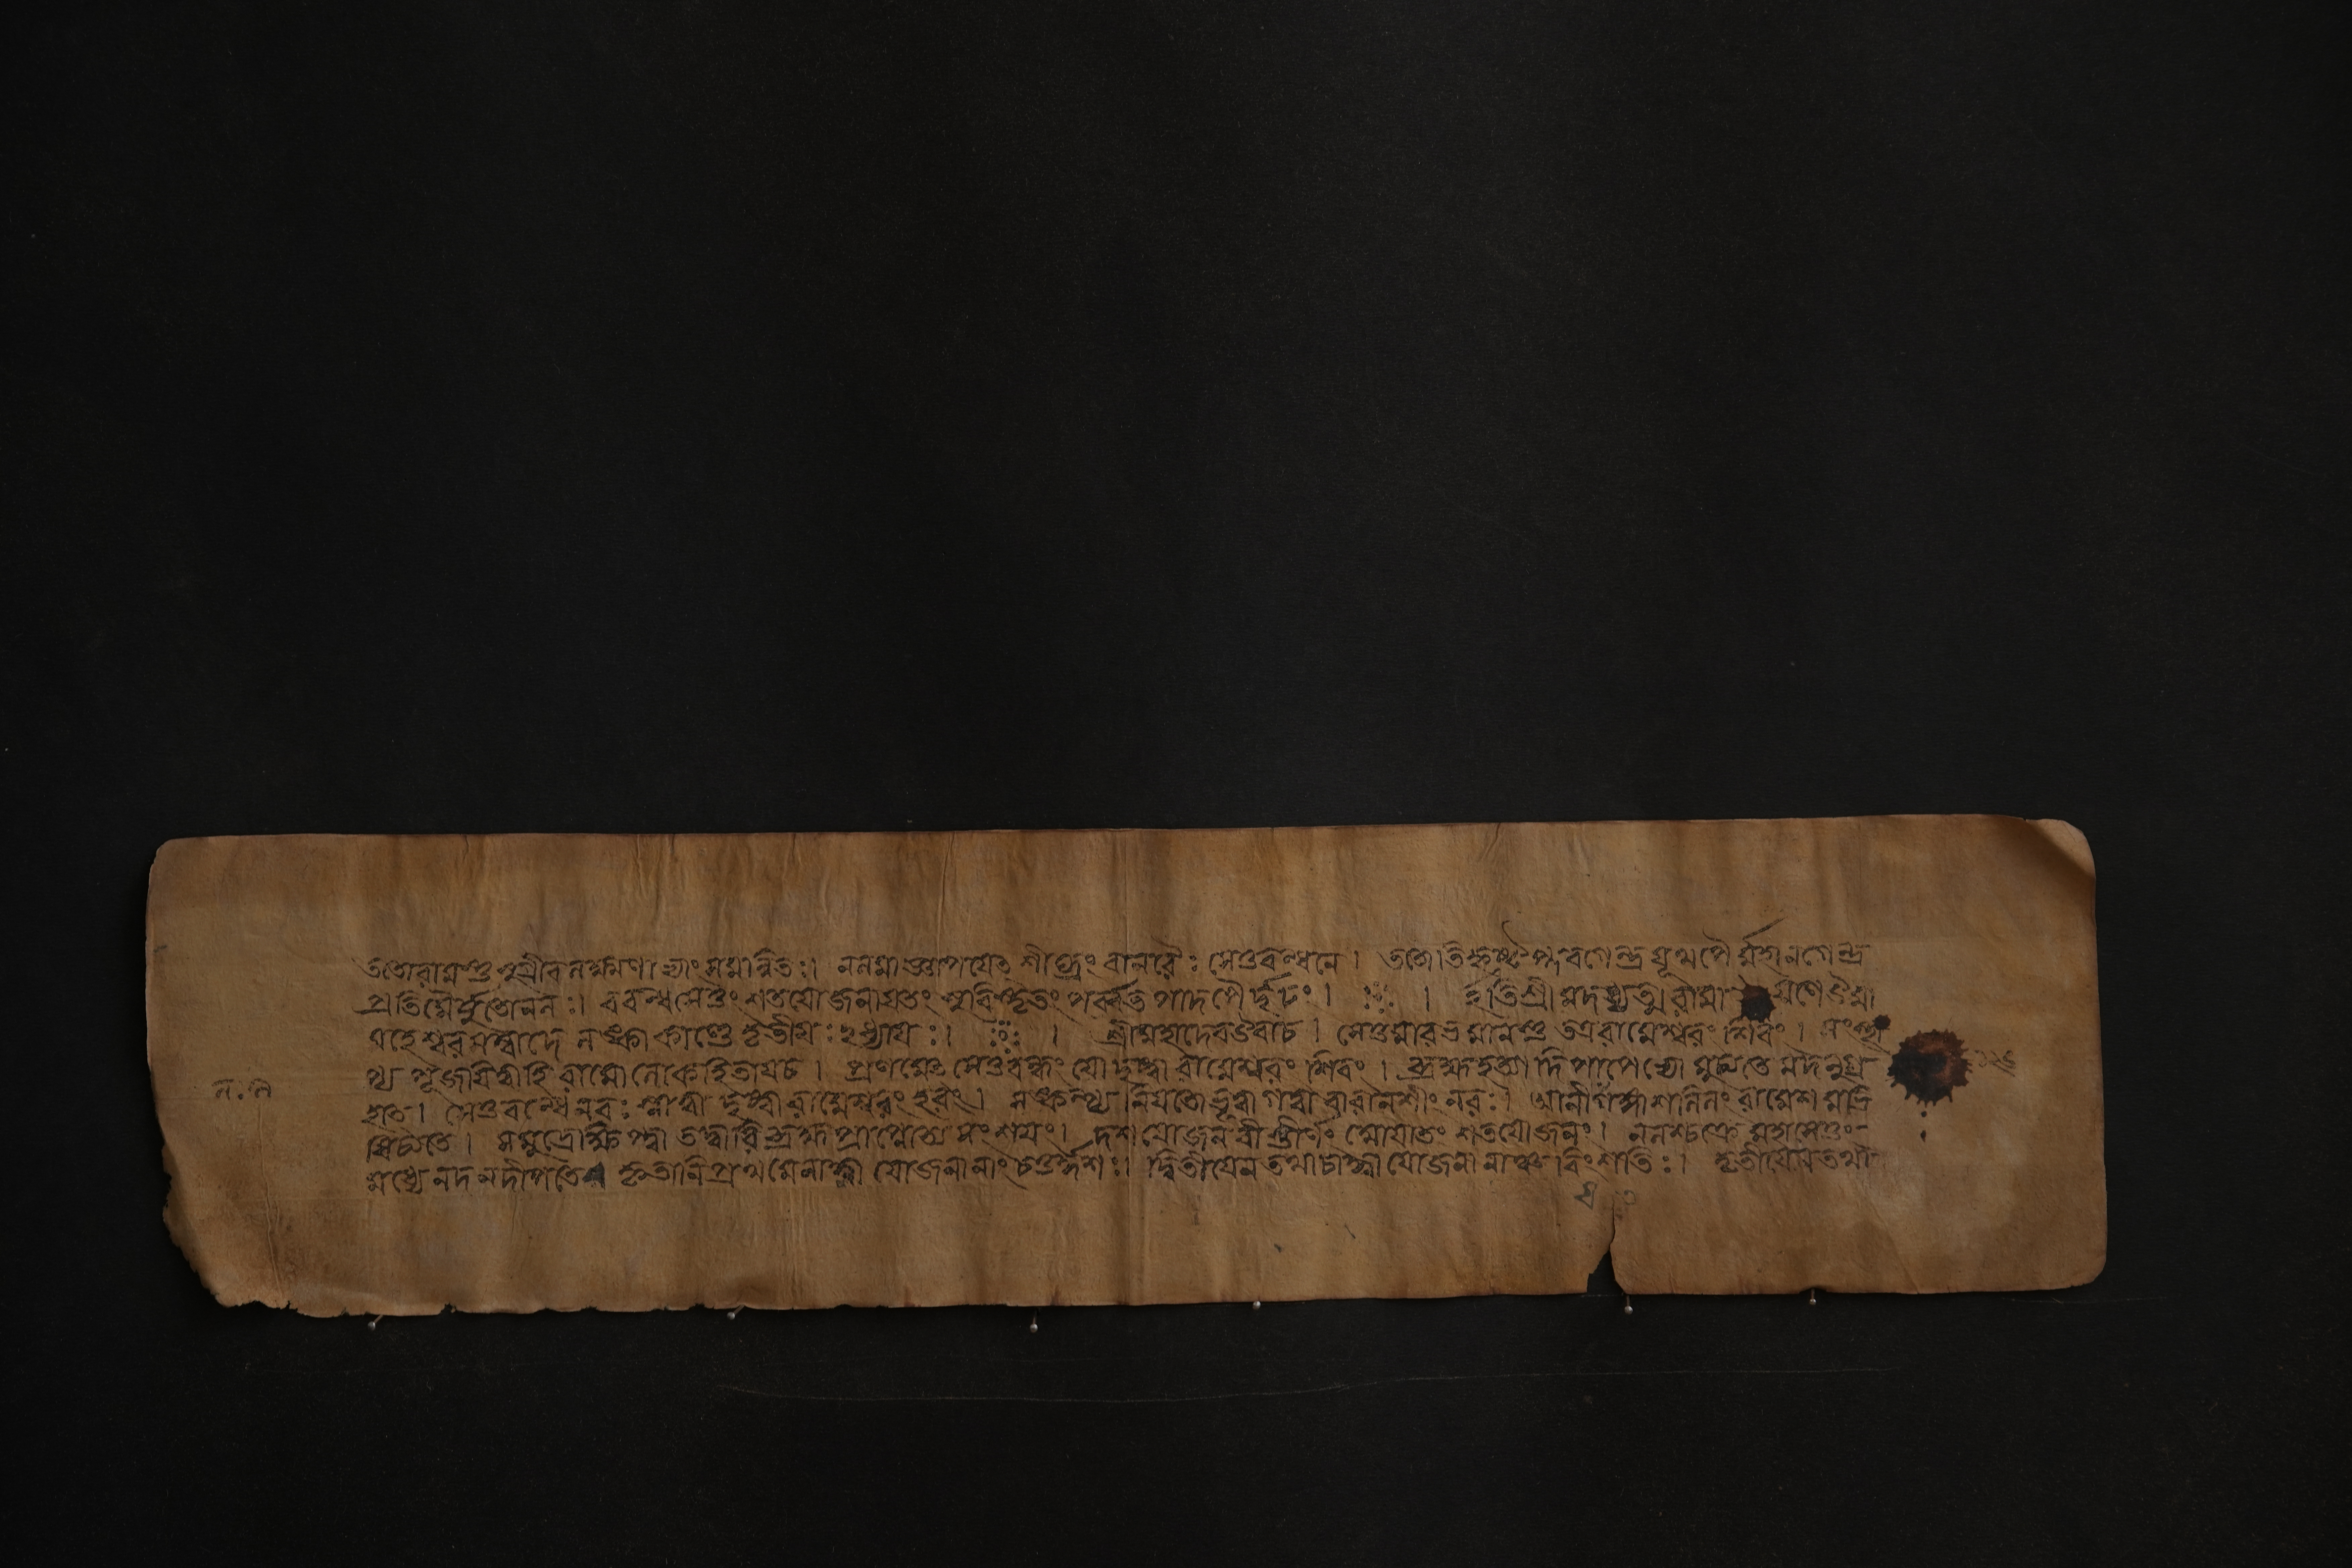 ততোরামস্তু সুগ্রীবলক্ষ্মণাভ্যাং সমান্বিতঃ। নলমাজ্ঞাপযেৎ শীঘ্রং বানরৈঃ সেতুবন্ধনে। ততোতিহৃষ্টঃ প্লবগেন্দ্রযূথপৈর্ম্মহানগেন্দ্র
প্রতিমৈর্যুতোনলঃ। ববন্ধসেতুং শতযোজনাযতং সুবিস্তৃতং পর্ব্বতপাদপৈর্দৃঢং। ইতিশ্রীমদধ্যাত্মরামা যণেউমা
মহেশ্বরসম্বাদে লঙ্কাকাণ্ডে তৃতীযঃ২ধ্যাযঃ। শ্রীমহাদেবউবাচ। সেতুমারভমানস্তু তত্ররামেশ্বরং শিবং। সংস্থা
প্য পূজযিত্বাহ রামোলোকহিতাযচ। প্রণমেৎ সেতুবন্ধং যোদৃষ্ট্বা রামেশ্বরং শিবং। ব্রহ্মহত্যাদিপাপেভ্যো মুচ্যতে মদনুগ্র
হাৎ। সেতুবন্ধেনরঃ স্নাত্বা দৃষ্ট্বারামেশ্বরং হরং। সঙ্কল্প্য নিযতোভূত্বাগত্বা বারানসীং নরঃ। আনীযগঙ্গাশলিলং রামেশমভি
ষিচ্যতে। সমুদ্রেক্ষিপ্ত্বা তদ্বারি ব্রহ্মপ্রাপ্নোত্য সংশযং। দশযোজনবীস্তীর্ণং শতযোজনং। নলশ্চক্রে মহাসেতুং
মধ্যে নদনদীপতেঃ কৃতানিপ্রথমেনাহ্না যোজনানাং চতুর্দ্দশঃ। দ্বিতীযেন তথাচাহ্না যোজনানাঞ্চ বিংশতিঃ। তৃতীযেনতথা